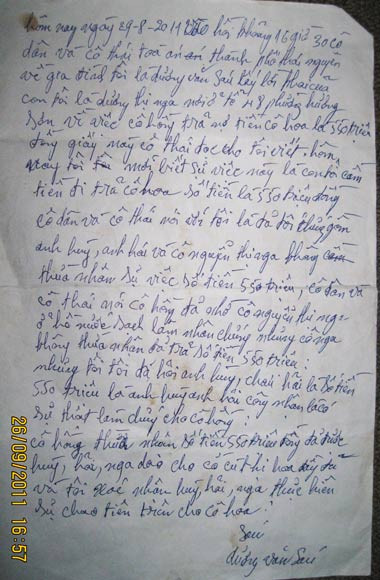 hôm nay ngày 29-8-2011 vào hồi không 16 giờ 30 cô
dân và cô thái toà án thành phố thái nguyên
về gia đình tôi là dương văn Sau lấy lời thai của
con tôi là dương thị nga nơi ở tổ 48 phường hương
Sơn về việc cô hồng trả nợ tiền cô hoa là 550 triệu
đồng giấy này cô thai đọc cho tôi viết. hôm
nay tôi mới biết sự việc này là con tôi cầm
tiền đi trả cô hoa số tiền là 550 triệu đồng
cô dân và cô thái nói với tôi là đã đối chứng gồm
anh huỳ, anh hải và cô nguyễn thị nga không
thừa nhân sự việc số tiền 550 triệu, cô dân và
cô thai nói cô hồng đã nhờ cô nguyễn thị nga
ở hồ nước Sach làm nhân chứng nhưng cô nga
không thừa nhân đã trả số tiền 550 triệu
nhưng tôi đã hỏi anh huỳ, cháu hải là số tiền
550 triệu là anh huỳ anh hai công nhân là có
sự thật làm chứng cho cô hồng
cô hồng thừa nhân số tiền 550 triệu đồng đã được
huỳ, hải, nga dao cho cô cu thi hoa đầy đủ
và tôi xac nhân huỳ, hải, nga thưc hiên
sự chao tiền trên cho cô hoa
Sau
dương văn Sau
26/09/2011 16:57